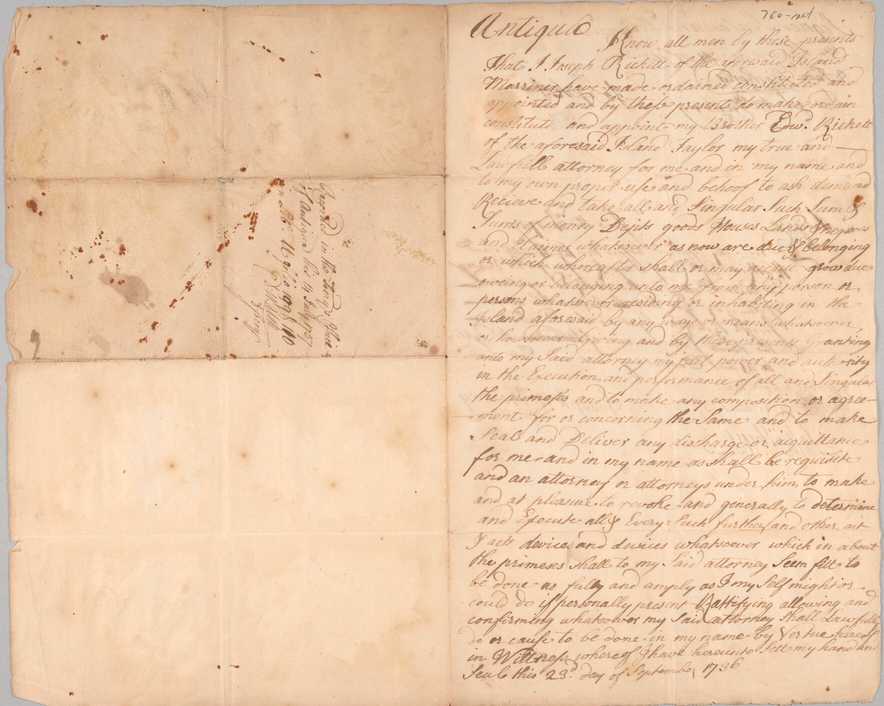 760-
Antigua
Know all men by these presents
That I Joseph Rickett of the aforesaid Island
Marriner have made ordained constituted and
appointed and by these presents do make ordain
constitute and appoint my Brother Edwd. Rickett
of the aforesaid Island Taylor my true and
Lawfull attorney for me and in my name and
to my own proper use and behoof to ask demand
Recieve and take all and Singular Such Sum &
Sums of money Debts goods Houses Lands &
and things whatsoever as now are due & belonging
or which hereafter shall or may grow due
owing or belonging unto me from any person or
persons whatsoever residing or inhabiting in the
Island aforesaid by any ways or means whatsoever
or howsoever giving and by these presents granting
unto my Said attorney my full power and authority
in the Execution and performance of all and Singular
the primeses and to make any composition or agree-
ment for or concerning the Same and to make
Seal and Deliver any discharge or acquittance
for me and in my name as shall be requisite
and an attorney or attorneys under him to make
and at pleasure to revoke and generally to determine
and Execute all & Every Such further and other act
& acts device and devices whatsoever which in about
the primeses shall to my Said attorney Seem fitt to
be done as fully and amply as I my Self might or
could do if personally present Rattifying allowing and
confirming whatsoever my Said attorney shall Lawfully
do or cause to be done in my name by Vertue hereof
in Wittness whereof I have hereunto Sett my hand and
Seale this 23d. day of September 1736
in the
of Antigua this 14